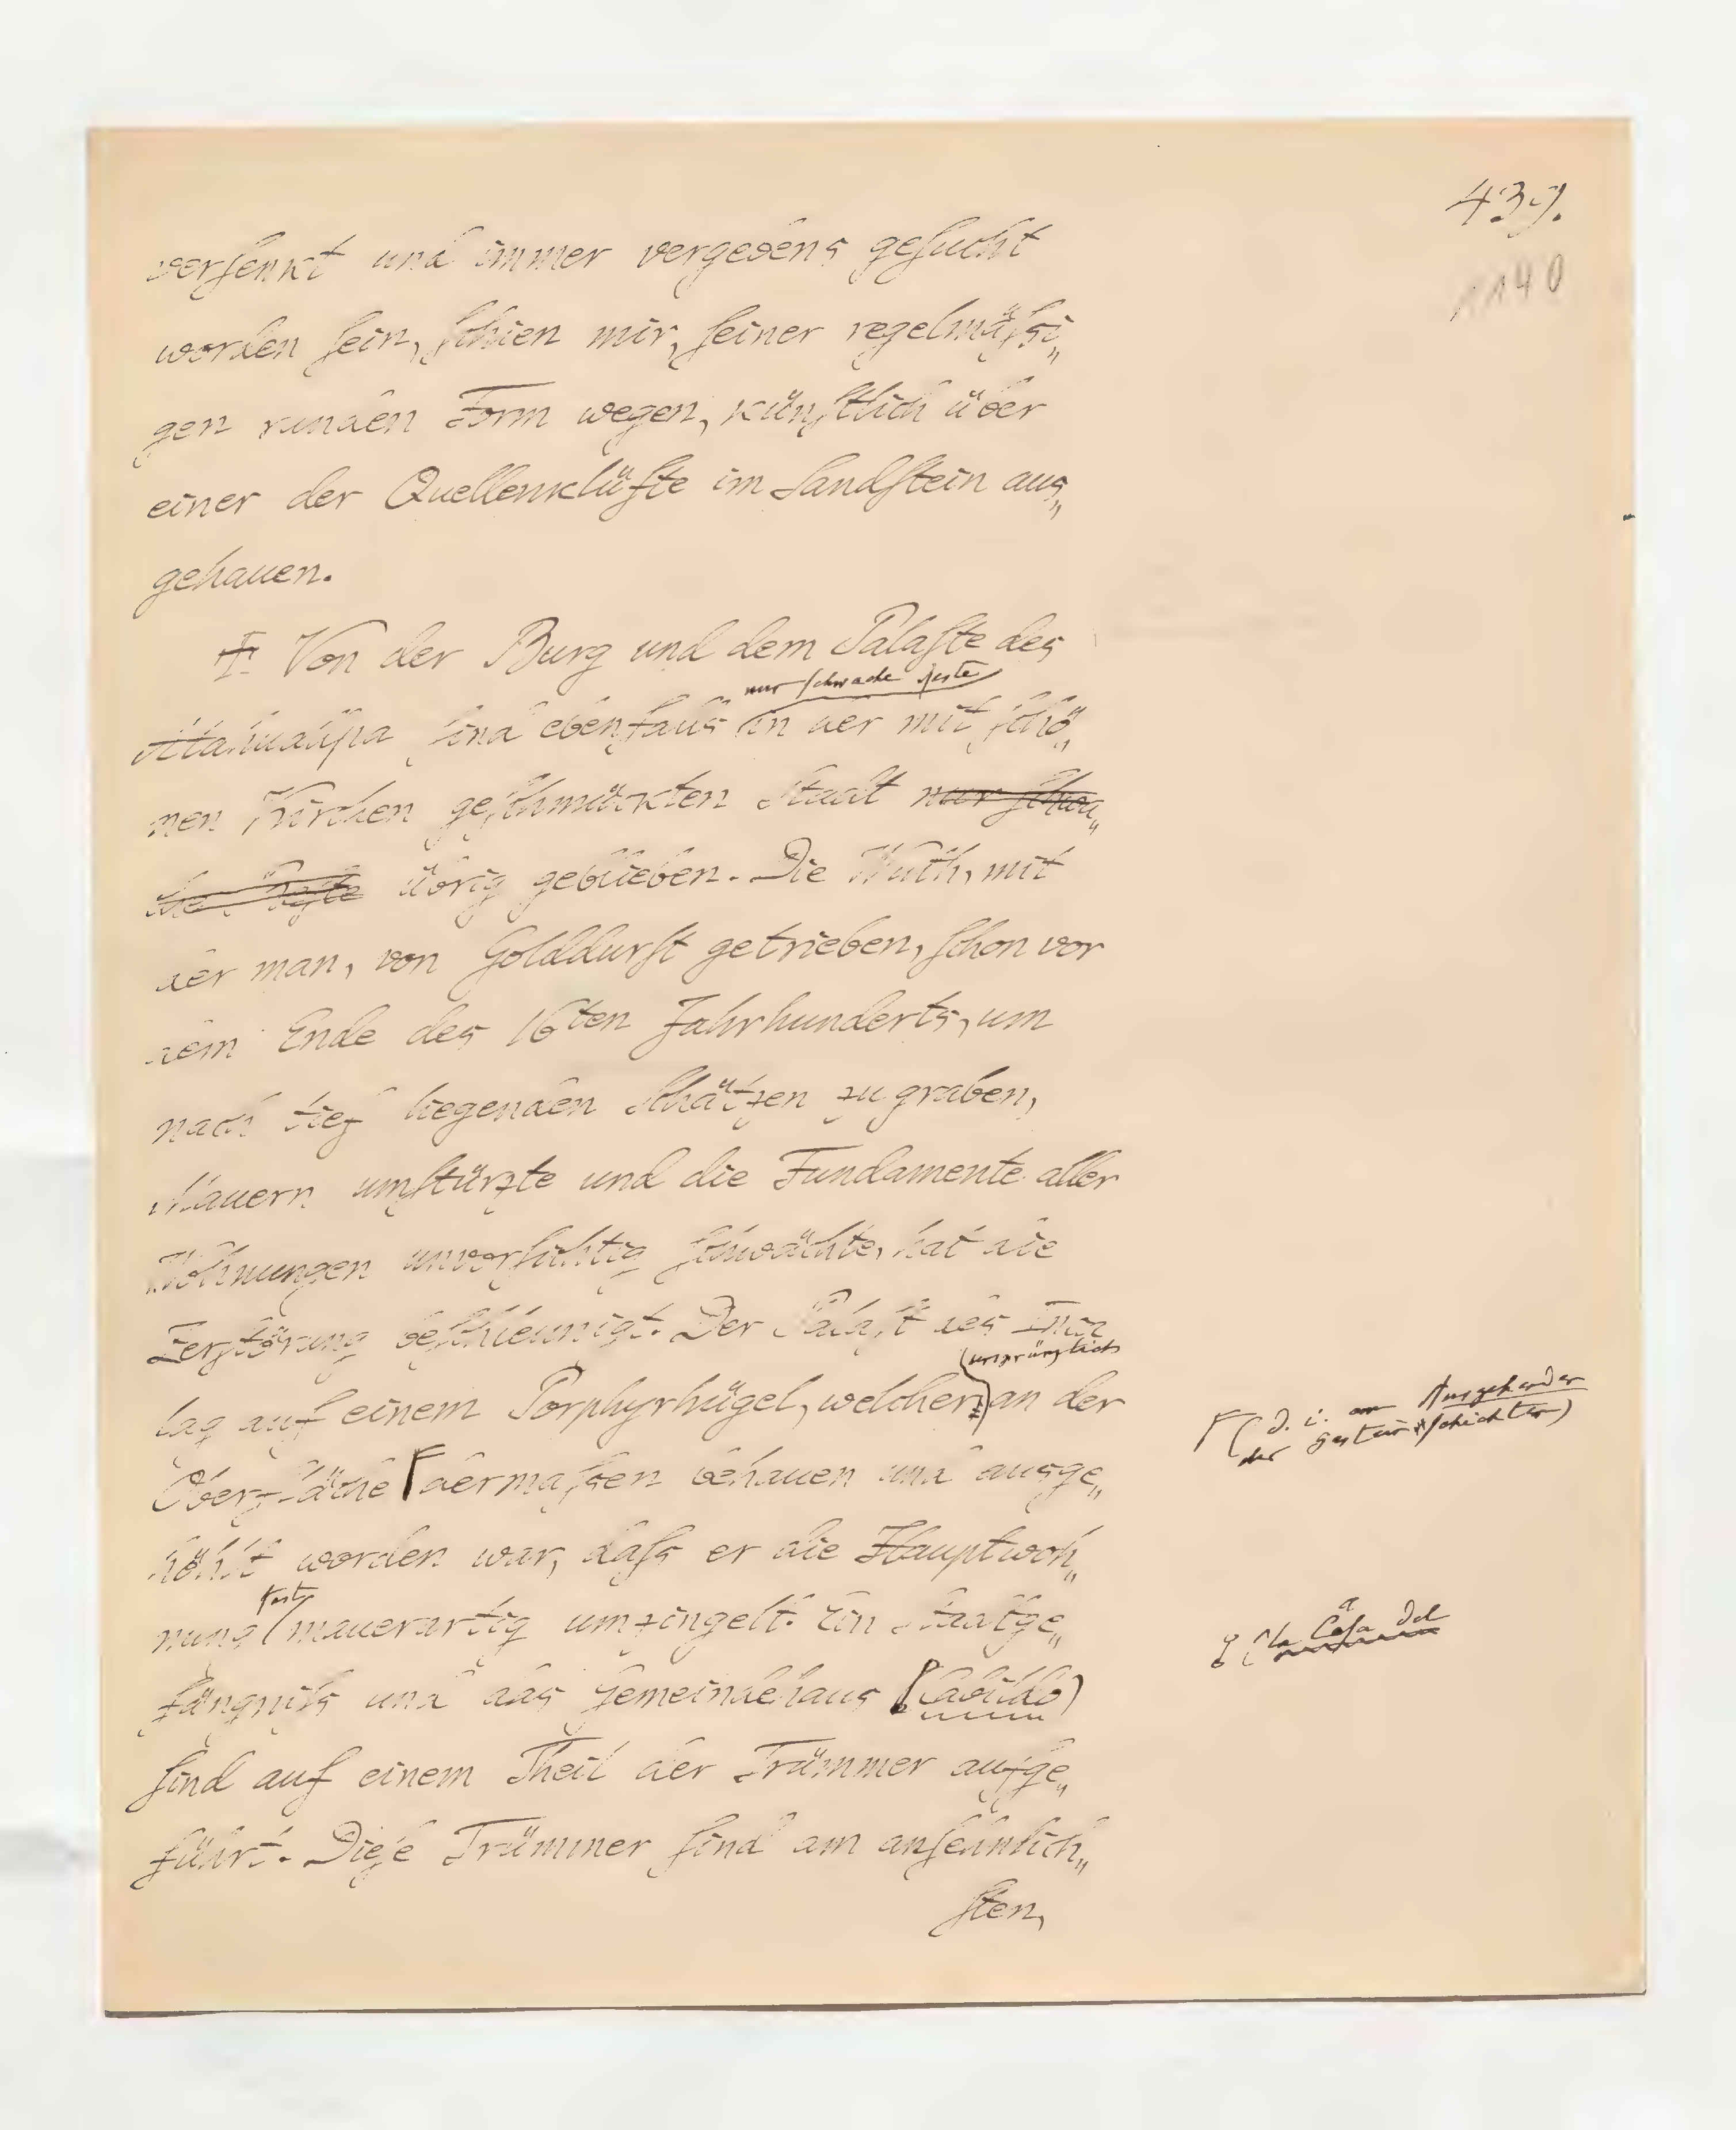 439.
1140
versenkt und immer vergebens gesucht
worden sein, schien mir, seiner regelmäßi„
gen runden Form wegen, künstlich über
einer der Quellenklüfte im Sandstein aus„
gehauen.
Von der Burg und dem Palaste des
nur schwache Reste
Atahuallpa sind ebenfalls in der mit schö„
nen Kirchen geschmückten Stadt nur schwa„
che Reste übrig geblieben. Die Wuth, mit
der man, von Golddurst getrieben, schon vor
dem Ende des 16ten Jahrhunderts, um
nach tief liegenden Schätzen zu graben,
Mauern umstürzte und die Fundamente aller
Wohnungen unvorsichtig schwächte, hat die
Zerstörung beschleunigt. Der Palast des Inca
ursprünglich
lag auf einem Porphyrhügel, welcher an der
Oberfläche dermaßen behauen und ausge„
(d. i. am Ausgehenden
der Gesteinschichten)
höhlt worden war, daß er die Hauptwoh„
fast
nung mauerartig umzingelt. Ein Stadtge„
(la Casa del
fängniß und das Gemeindehaus (Cabildo)
sind auf einem Theil der Trümmer aufge„
führt. Diese Trümmer sind am ansehnlich„
sten,